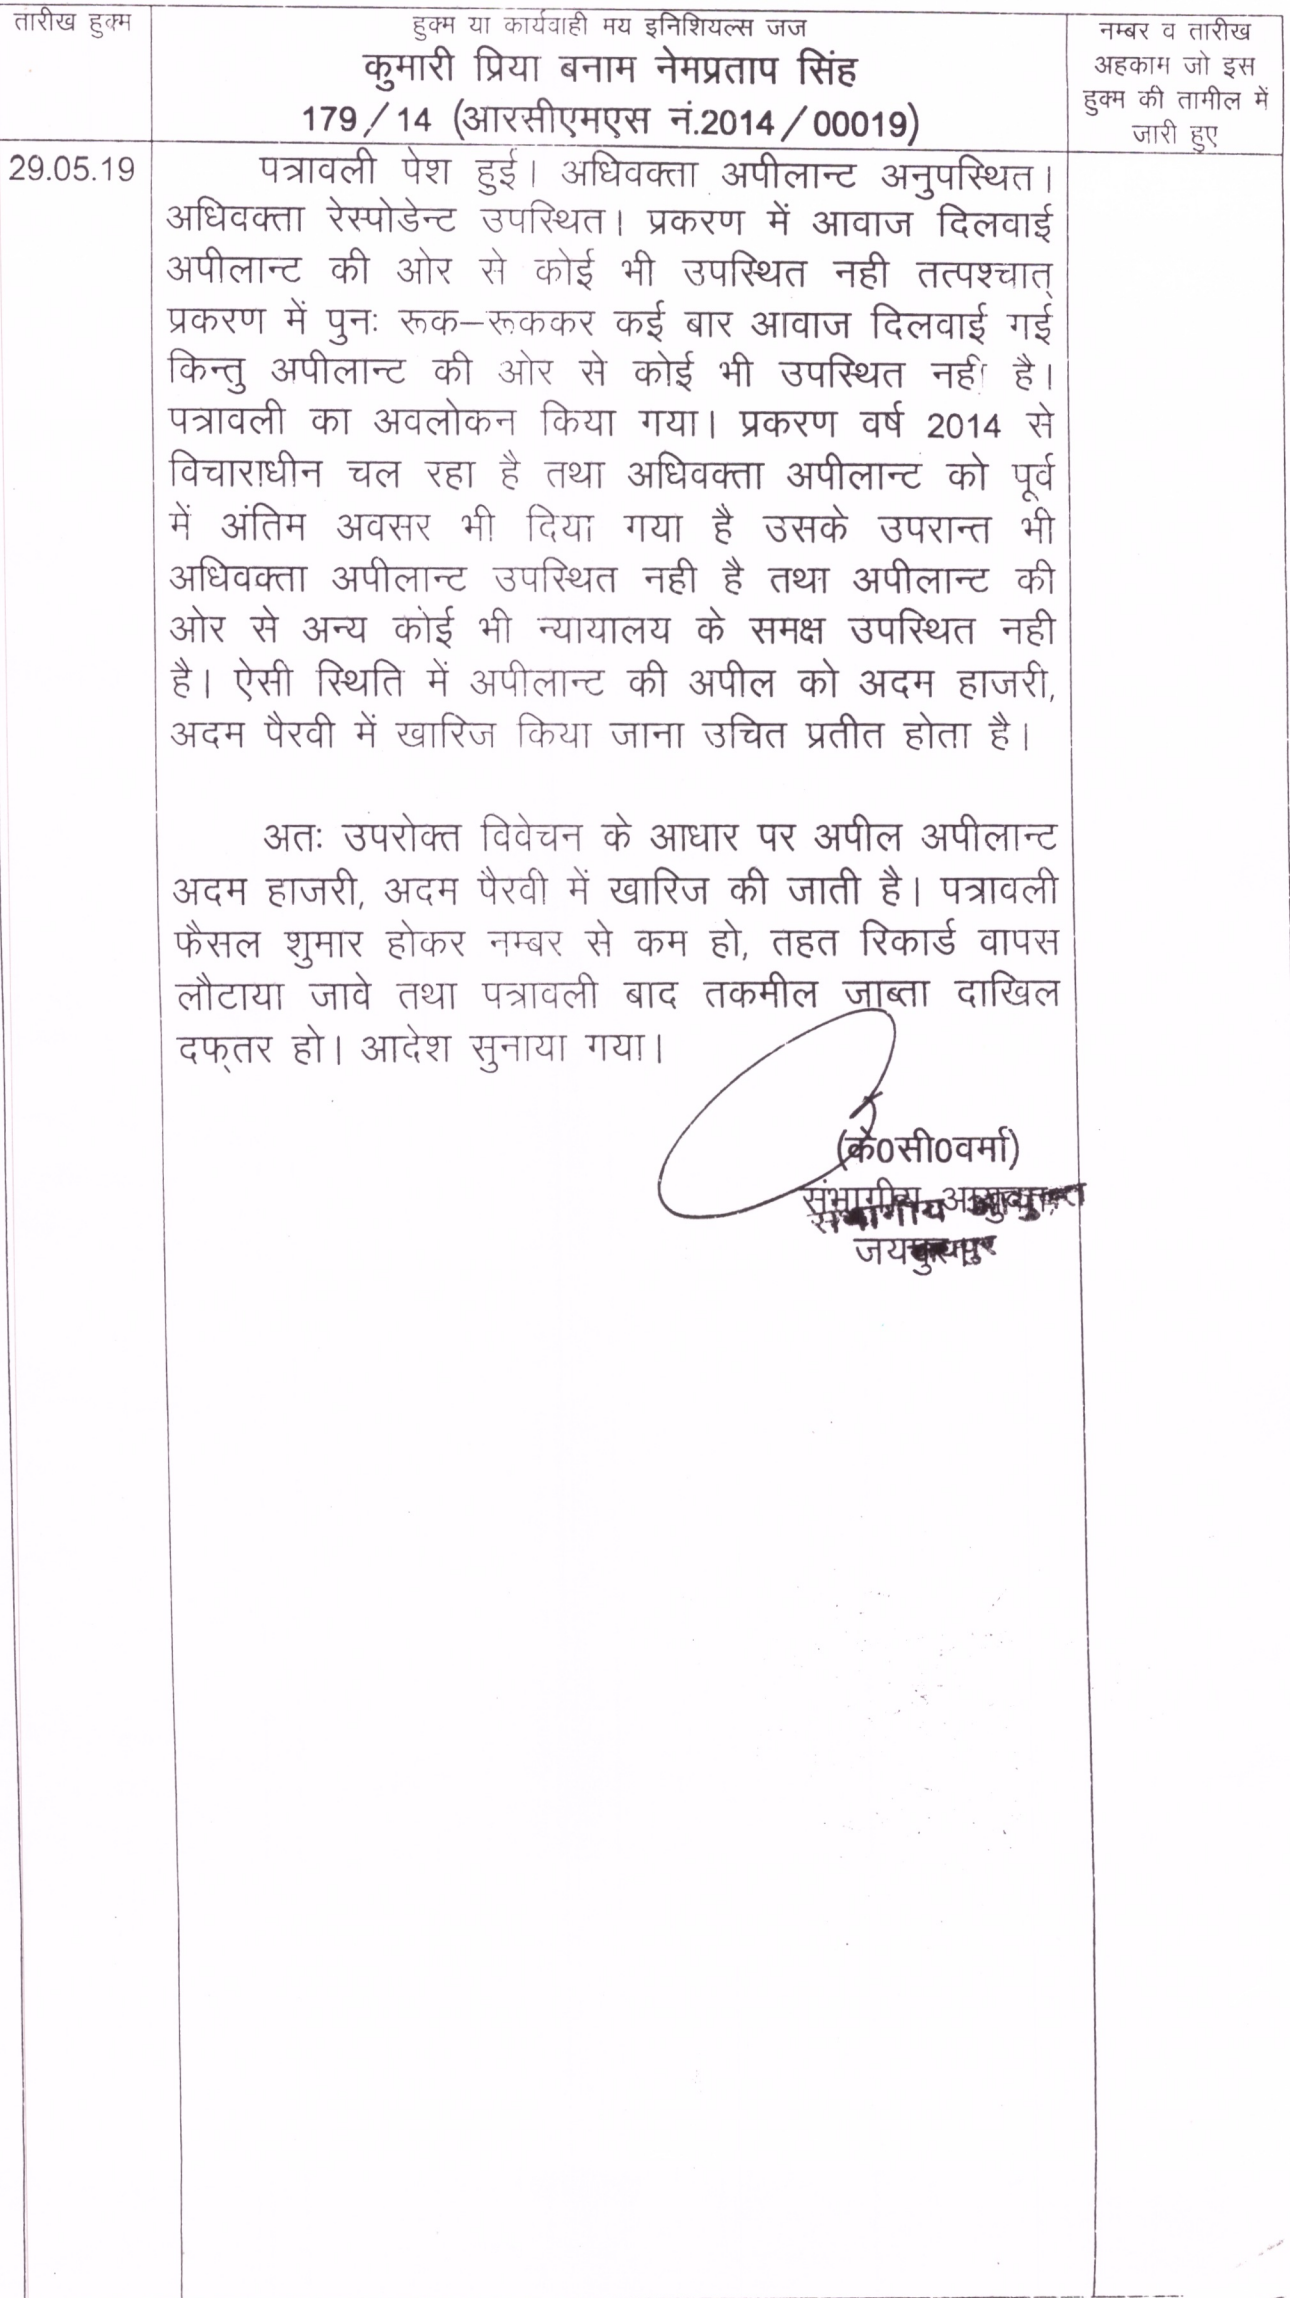 तारीख हुक्म
हुक्म या कार्यवाही मय इनिशियल्स जज
कुमारी प्रिया बनाम नेमप्रताप सिंह
179/14 (आरसीएमएस नं.2014/00019)
नम्बर व तारीख
अहकाम जो इस
हुक्म की तामील में
जारी हुए
29.05.19
पत्रावली पेश हुई। अधिवक्ता अपीलान्ट अनुपस्थित।
अधिवक्ता रेस्पोडेन्ट उपस्थित। प्रकरण में आवाज दिलवाई
अपीलान्ट की ओर से कोई भी उपस्थित नही तत्पश्चात्
प्रकरण में पुनः रूक–रूककर कई बार आवाज दिलवाई गई
किन्तु अपीलान्ट की ओर से कोई भी उपस्थित नही है।
पत्रावली का अवलोकन किया गया। प्रकरण वर्ष 2014 से
विचाराधीन चल रहा है तथा अधिवक्ता अपीलान्ट को पूर्व
में अंतिम अवसर भी दिया गया है उसके उपरान्त भी
अधिवक्ता अपीलान्ट उपस्थित नही है तथा अपीलान्ट की
ओर से अन्य कोई भी न्यायालय के समक्ष उपस्थित नही
है। ऐसी स्थिति में अपीलान्ट की अपील को अदम हाजरी,
अदम पैरवी में खारिज किया जाना उचित प्रतीत होता है।
अतः उपरोक्त विवेचन के आधार पर अपील अपीलान्ट
अदम हाजरी, अदम पैरवी में खारिज की जाती है। पत्रावली
फैसल शुमार होकर नम्बर से कम हो, तहत रिकार्ड वापस
लौटाया जावे तथा पत्रावली बाद तकमील जाब्ता दाखिल
दफ्तर हो। आदेश सुनाया गया।
(के0सी0वर्मा)
संभागीय आयुक्त
जयपुर